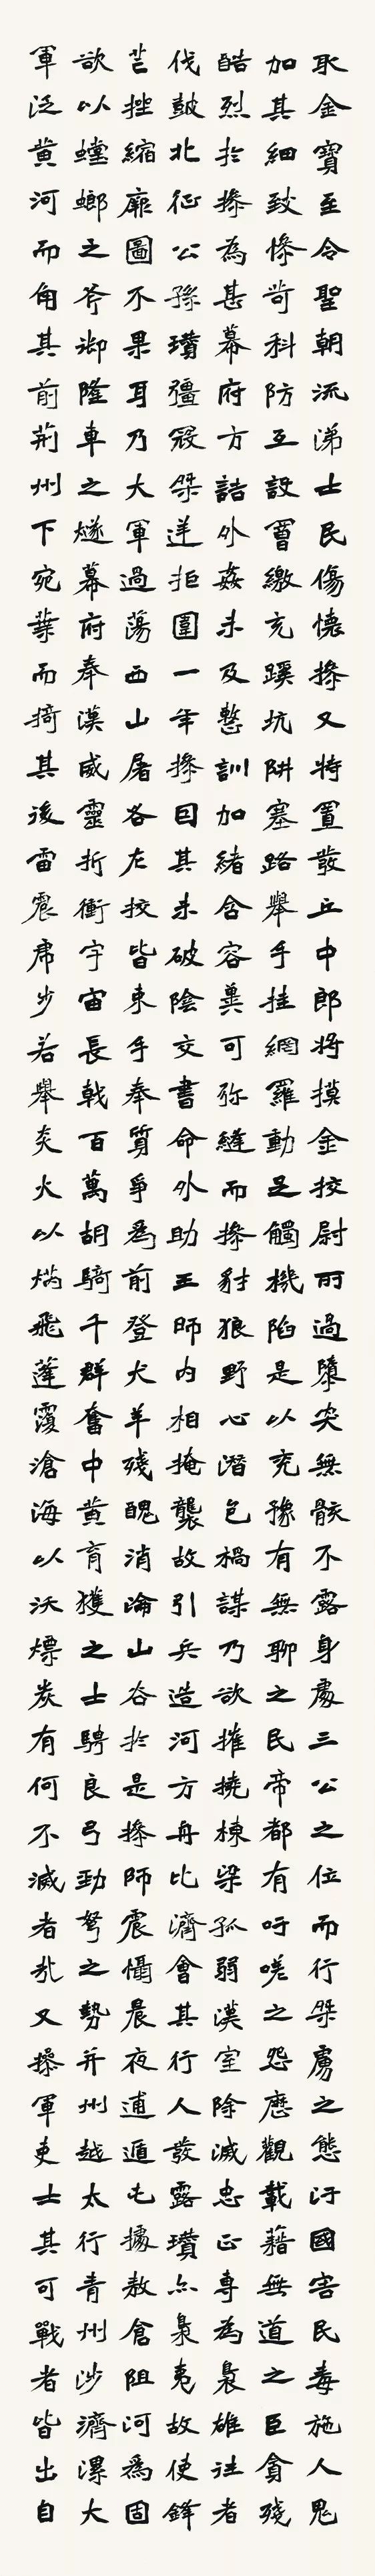 取金寶至令聖朝流涕士民傷懷操又特置發丘中郎將摸金校尉所過隳突無骸不露身處三公之位而行桀虜之態汙國害民毒施人鬼
加其細致慘苛科防互設罾繳充蹊坑阱塞路舉手挂網羅動足觸機陷是以兗豫有無聊之民帝都有吁嗟之怨歷觀載籍無道之臣貪殘
酷烈於操為甚幕府方詰外姦未及整訓加緒含容冀可弥縫而操豺狼野心潛包禍謀乃欲摧撓棟梁孤弱漢室除滅忠正專為梟雄往者
伐鼓北征公孫瓚彊寇桀逆拒圍一年操因其未破陰交書命外助王師內相掩襲故引兵造河方舟比濟會其行人發露瓚亦梟夷故使鋒
芒挫縮厥圖不果耳乃大軍過蕩西山屠各左校皆束手奉質爭為前登犬羊殘醜消淪山谷於是操師震懾晨夜逋遁屯據敖倉阻河為固
欲以螳螂之斧御隆車之隧幕府奉漢威靈折衝宇宙長戟百萬胡騎千群奮中黃育獲之士騁良弓勁弩之勢并州越太行青州涉濟漯大
軍泛黃河而角其前荊州下宛葉而掎其後雷震虎步若舉炎火以焫飛蓬覆滄海以沃熛炭有何不滅者哉又操軍吏士其可戰者皆出自